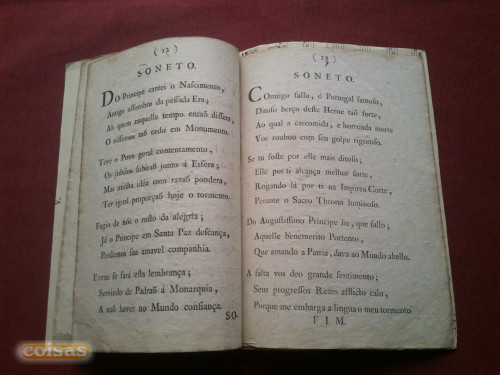 ( 12 )
SONETO.
DO Principe cantei o Nascimento,
Antigo assombro da passada Era;
Ah quem naquelle tempo entaõ dissera,
O visseraõ taõ cedo em Monumento.
Teve o Povo geral contentamento,
Os jubilos subiraõ junto á Esfera;
Mas minha idéa com razaõ pondera,
Ter igual proporçaõ hoje o tormento.
Fugio de nós o rosto da alegria;
Já o Principe em Santa Paz descança,
Perdemos sua amavel companhia.
Eterna se fará esta lembrança;
Servindo de Padraõ á Monarquia,
A naõ haver no Mundo confiança.
SO-
( 13 )
SONETO.
COmtigo fallo, ó Portugal famoso,
Ditoso berço deste Heroe taõ forte,
Ao qual a carcomida, e horrenda morte
Vos roubou com seu golpe rigoroso.
Se tu foste por elle mais ditoso;
Elle por ti alcança melhor sorte,
Rogando lá por ti na Impirea Corte,
Perante o Sacro Throno luminoso.
Do Augustissimo Principe he, que fallo;
Aquelle benemerito Portento,
Que amando a Patria, dava ao Mundo aballo.
A falta vos deo grande sentimento;
Seus progressos Reaes afflicto calo,
Porque me embarga a lingua o meu tormento
FIM.
coisas